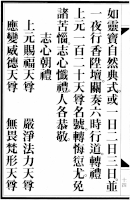 如靈寶自然典式或一日二日三日並
一夜行香昇壇關奏六時行道轉禮
上元一百二十天尊名號轉悔愆尤免
諸苦惱志心懺禮人各恭敬
志心朝禮
上元賜福天尊
嚴淨法力天尊
應變威德天尊
無畏梵形天尊